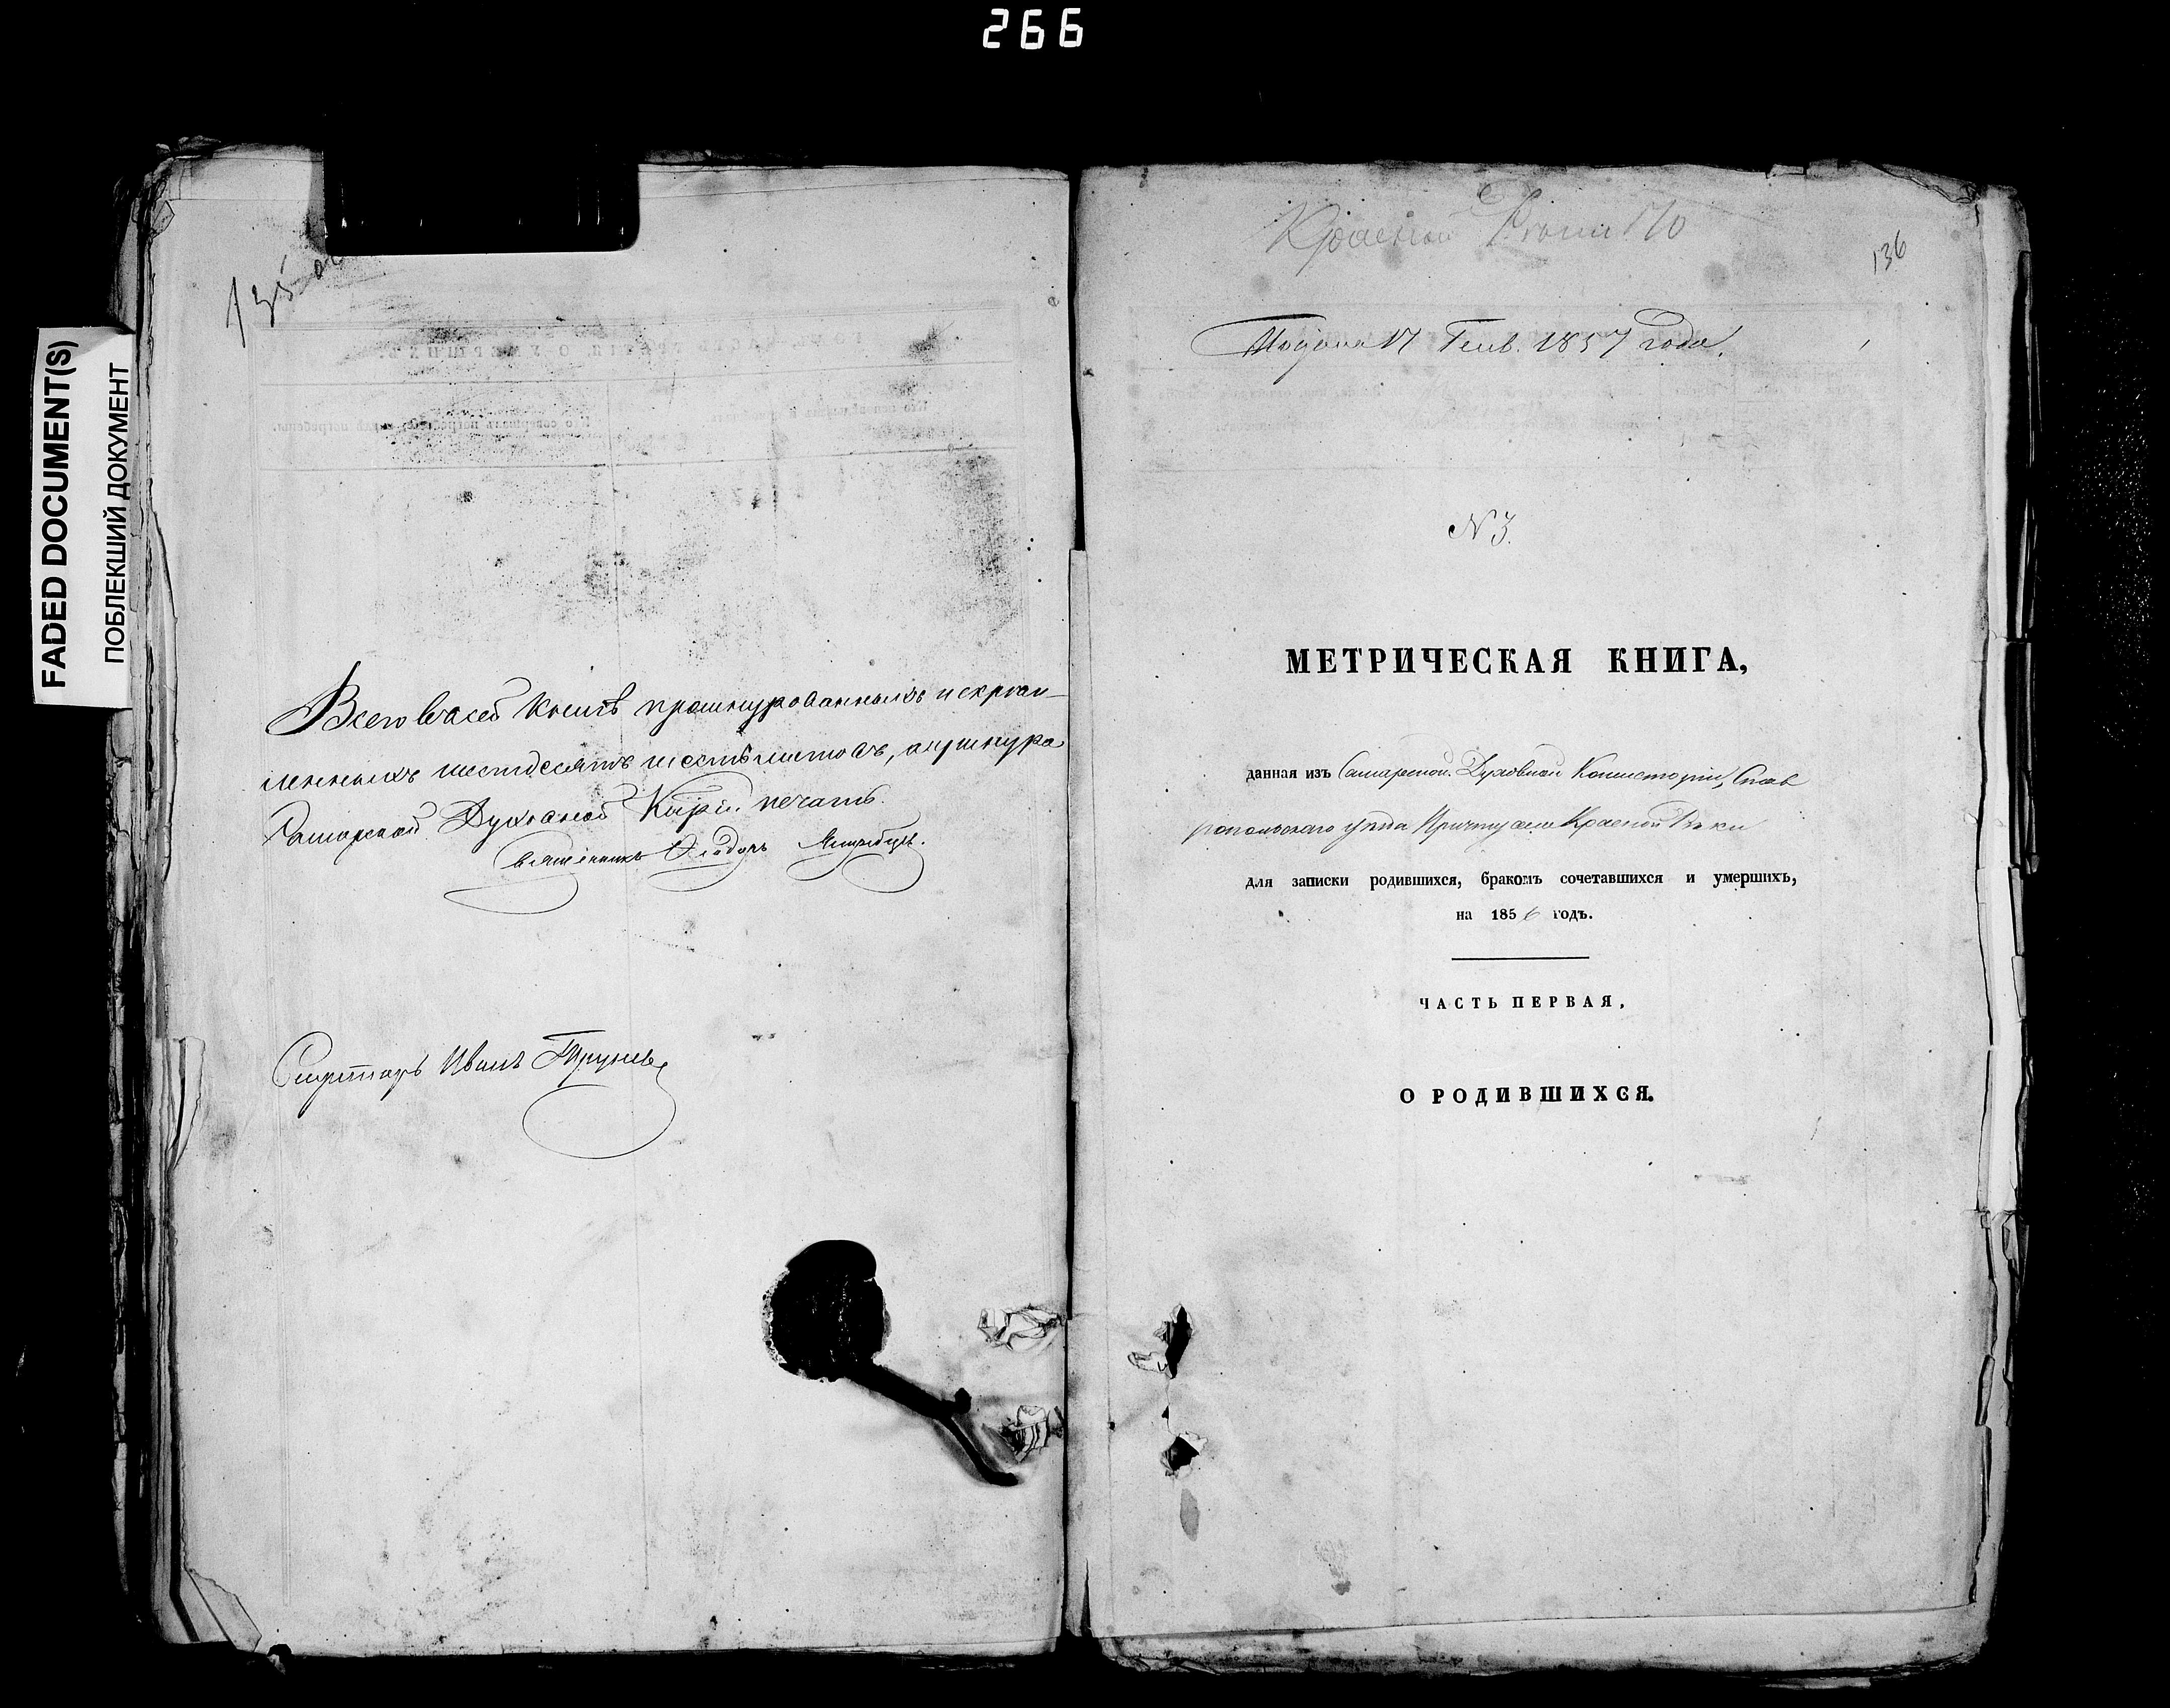 266
FADED DOCUMENT(S)
ПОБЛЕКШИЙ ДОКУМЕНТ
135 об
Всего въ сей книгѣ прошнурованныхъ и скрѣп-
ленныхъ шестдесятъ шесть листовъ, а у шнура
Самарской Духовной печать.
Священникъ Ѳеодоръ
Секретарь Иванъ
Красной 170
136
Подана 17 Генв. 1857 года.
N 3.
МЕТРИЧЕСКАЯ КНИГА,
данная изъ Самарской Духовной Консисторіи, Став
ропольскаго уѣзда Причту села Красной Рѣки
для записки родившихся, бракомъ сочетавшихся и умершихъ,
на 1856 годъ.
ЧАСТЬ ПЕРВАЯ,
О РОДИВШИХСЯ.